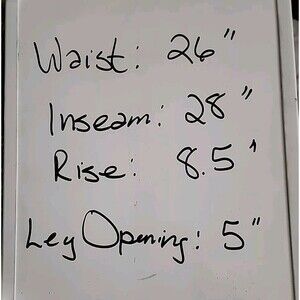 Waist: 26"
Inseam: 28"
Rise: 8.5'
Leg Opening: 5"